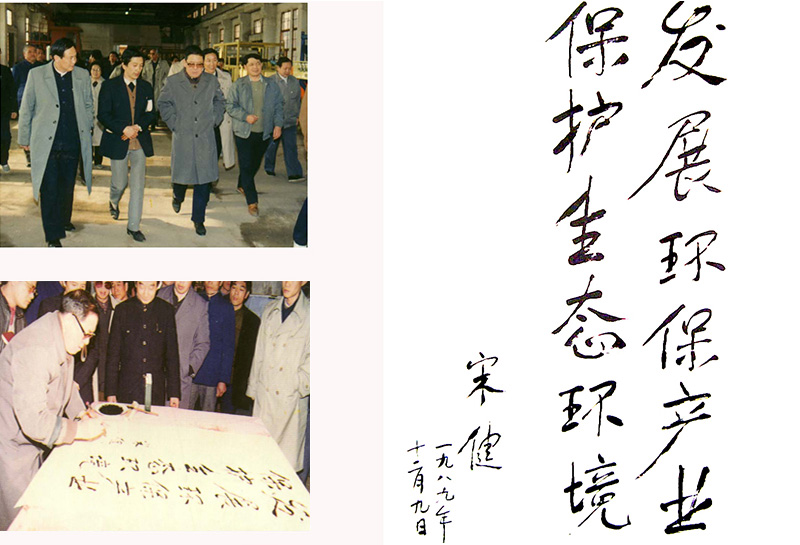 发展环保产业
保护生态环境
宋健
一九八九年
十二月九日